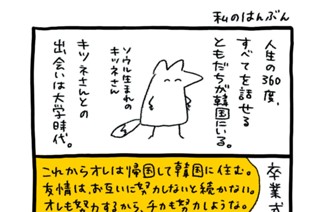 私のはんぶん
人生の360度、
すべてを話せる
ともだちが韓国にいる。
ソウル生まれの
キツネさん
キツネさんとの
出会いは大学時代。
卒業式
これからオレは帰国して韓国に住む。
友情は、お互いに努力しないと続かない。
オレも努力するから、チカも努力しような。